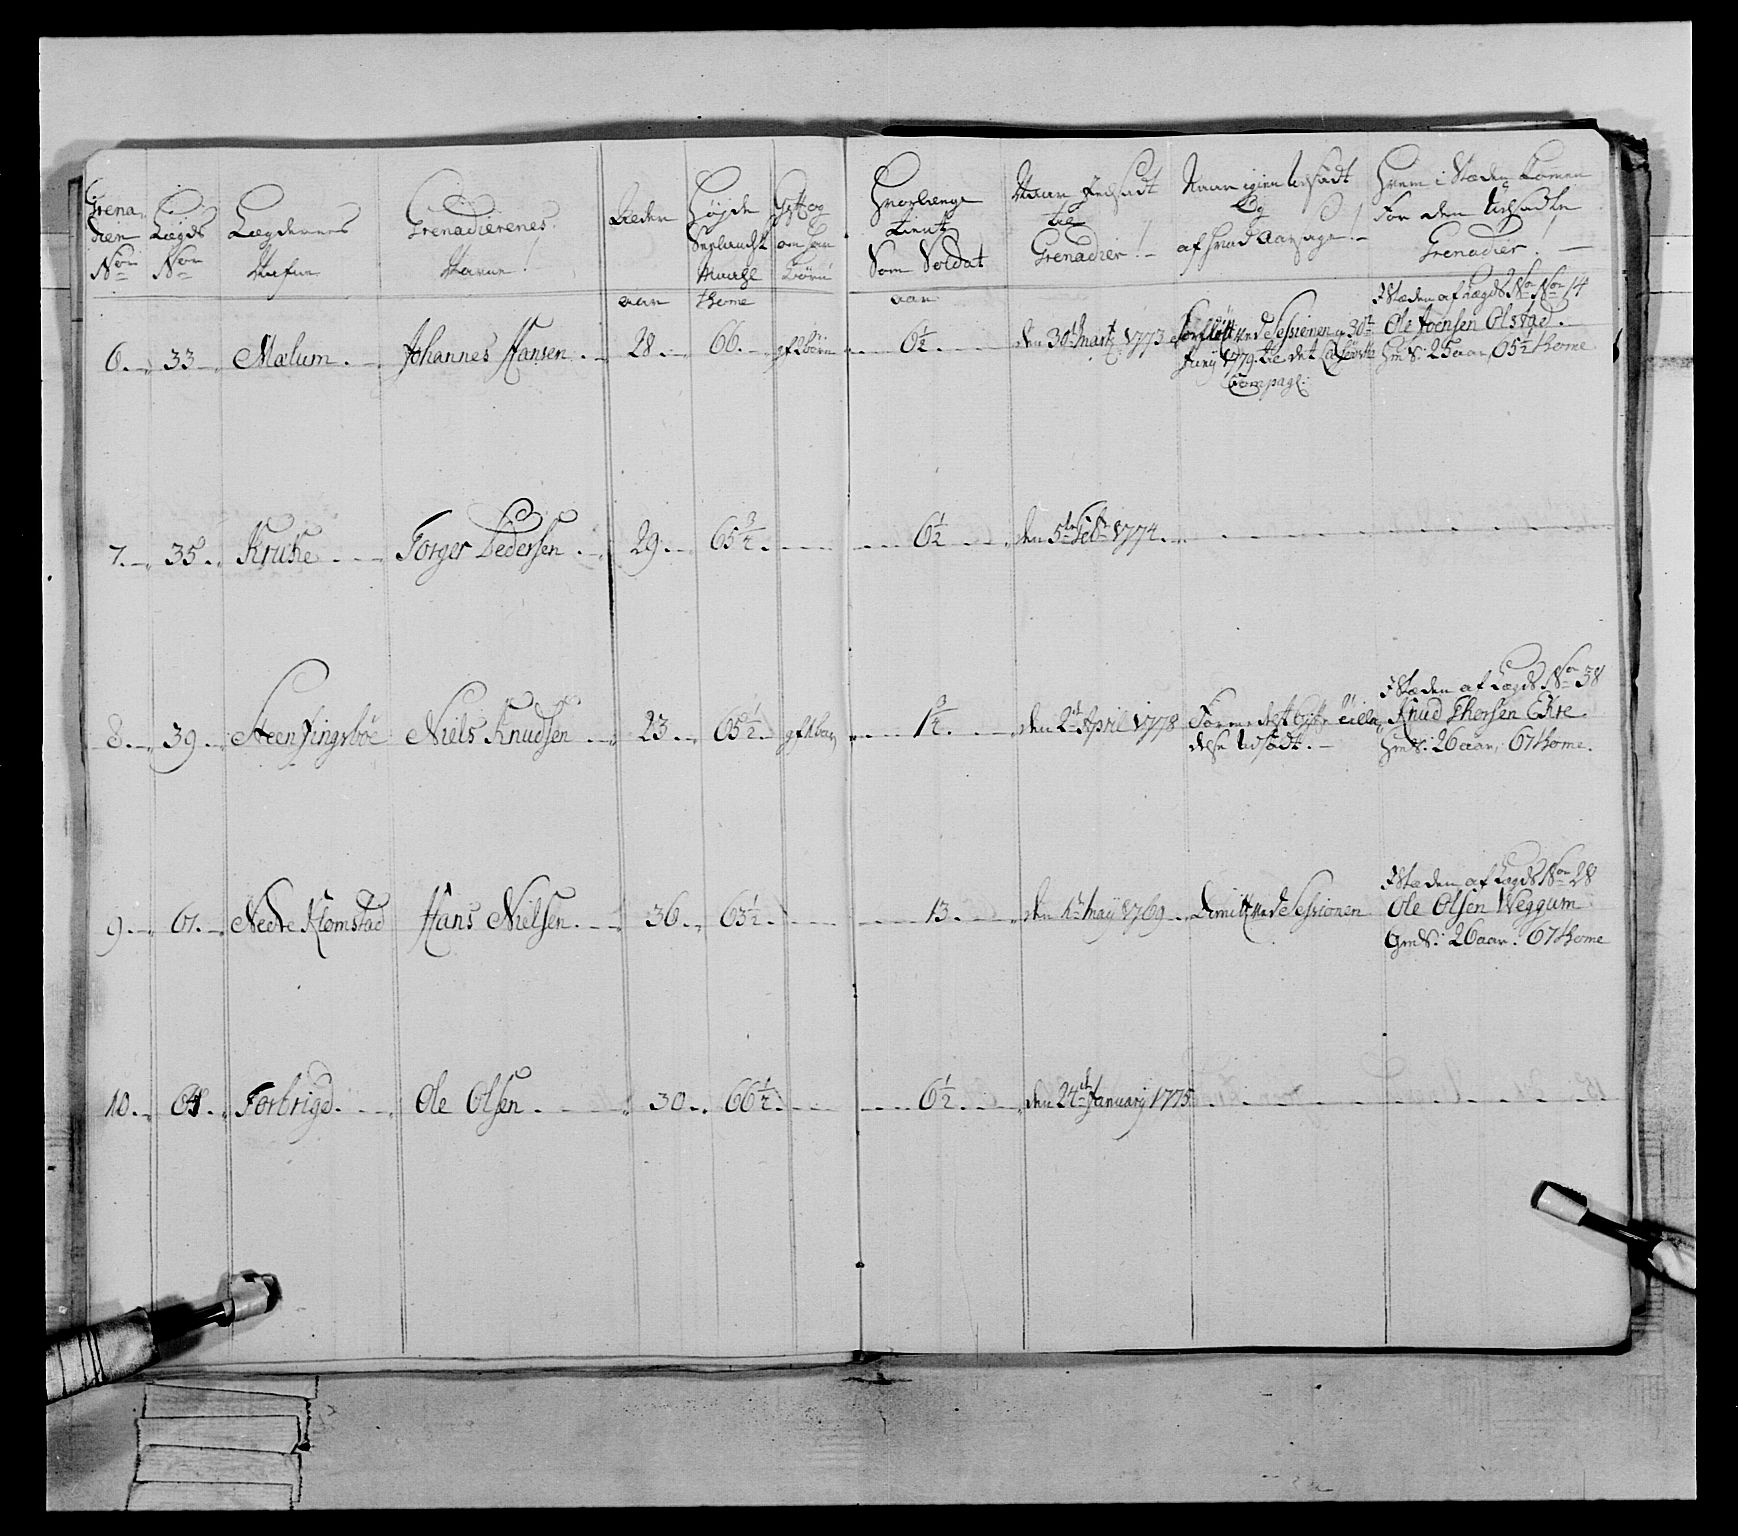 Grena-
dier
No
Lægds
No
Lægdernes
Nafne
Grenadierenes
Navne!
Alder
Høyde
Siælandsk
Maal
Gift og
om han
Børn
Hvorlænge
tient
Som Soldat
Naar Indsadt
til
Grenadier!
Naar igien udsadt
Og
af hvad Aarsage!
Hvem i Stæden komen
For den Udsadte
Grenadier!
aar
thome
aar
6. 33 Mælum. Johannes Hansen. 28. 66. gf 2 börn 6½ den 30te Marti 1773
ved Sessionen 30te
Juny 1779 til det
Compagn:
I Stæden af Lægds No 14
Ole Joensen Olstad.
25 aar, 65½ thome
7. 35. Kruke Torger Pedersen. 29. 65¾. 6½ den 5te Febr 1774.
8. 39. Steenfingsböe Niels Knudsen 23. 65½. gf 1 barn 1¾. den 2den April 1778
udsadt.
I Stæden af Lægds No 38
Knud Thorsen Ekre
26 aar, 67 thome.
9. 61. Nedre Klomstad Hans Nielsen. 36. 63½. 13. den 1te May 1769. Dimitt ved Sessionen
I Stæden af Lægds No 28
Ole Olsen Weggum
26 aar. 67 thome
10. 64. Forbrigd. Ole Olsen. 30. 66½. 6½. den 24de January 1775